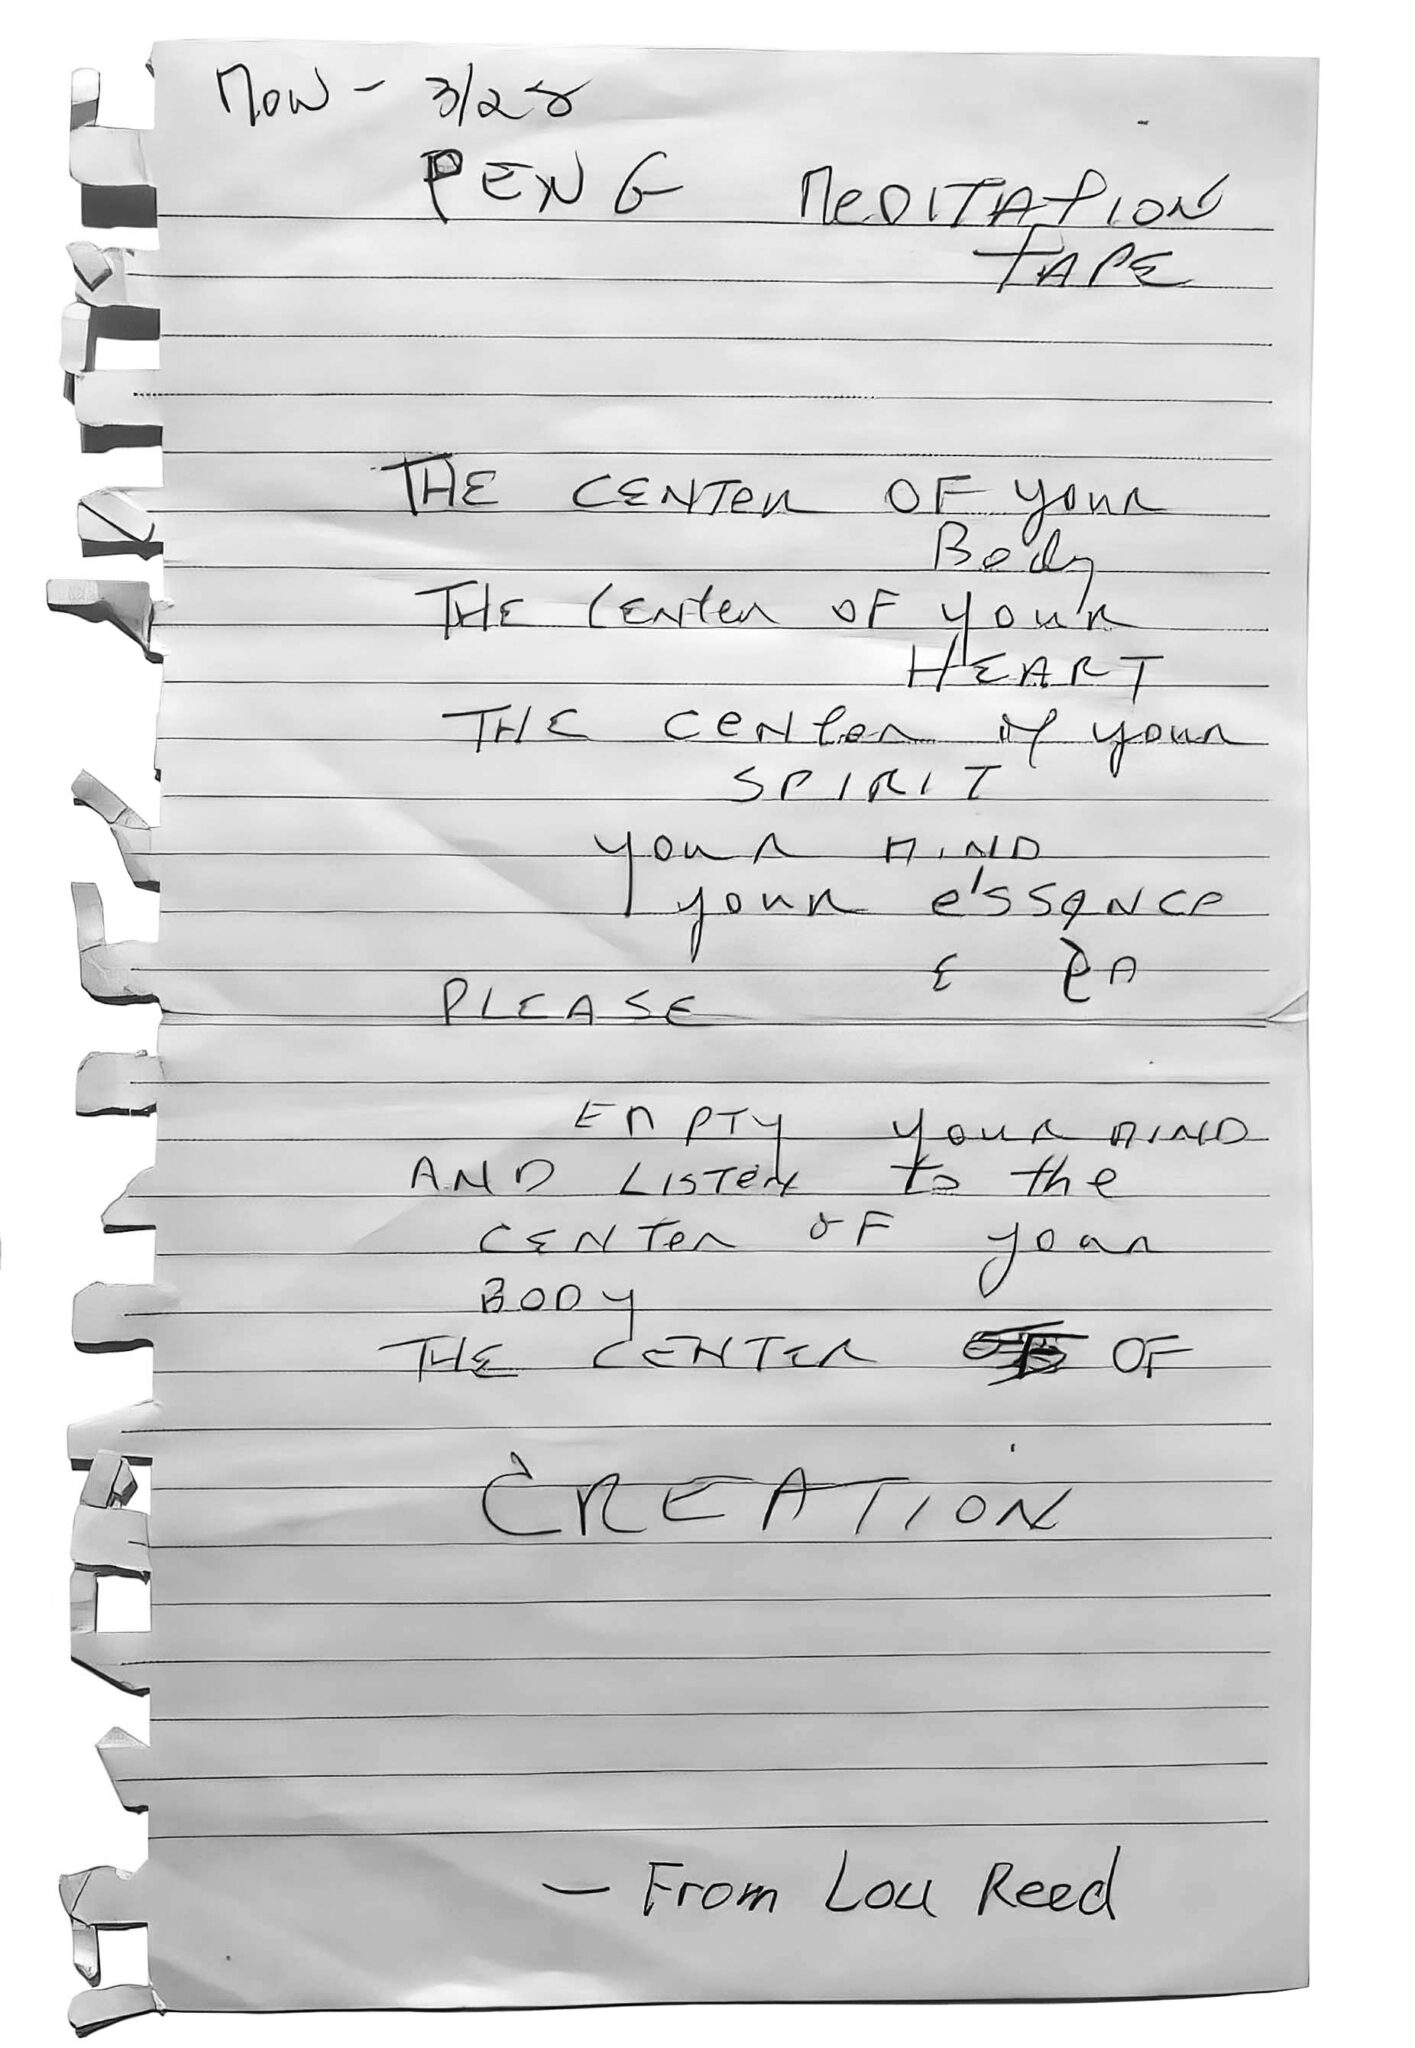 Mon - 3/28
PENG MeDITATION
TAPE
THE CENTer OF your
Body
THE CENTer OF your
HEART
THE CeNter of your
SPIRIT
your MIND
your e'ssence
&
PLEASE
EMPTY your MIND
AND LISTeN to the
CENTer OF your
BODY
THE CENTER OF
CREATION
- From Lou Reed